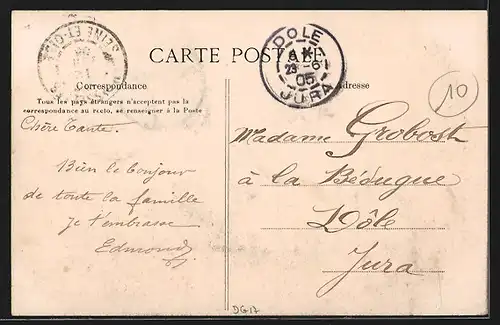 SEINE-ET-OISE
CARTE POSTALE
DOLE
23 -6
05
JURA
Correspondance
Adresse
Tous les pays étrangers n'acceptent pas la
correspondance au recto, se renseigner à la Poste
10
Chère Tante.
Bien le bonjour
de toute la famille
je t'embrasse
Edmond
Madame Grobost
à la Bédugue
Dôle
Jura
DG17